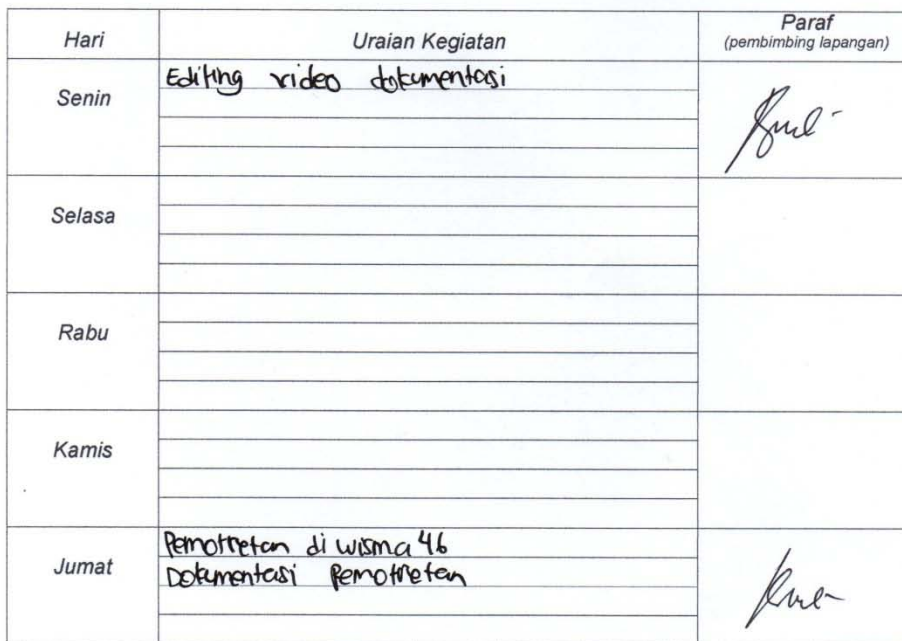 Hari Uraian Kegiatan Paraf
(pembimbing lapangan)
Senin
Editing video dokumentasi
Selasa
Rabu
Kamis
Jumat
Pemotretan di wisma 46
Dokumentasi Pemotretan